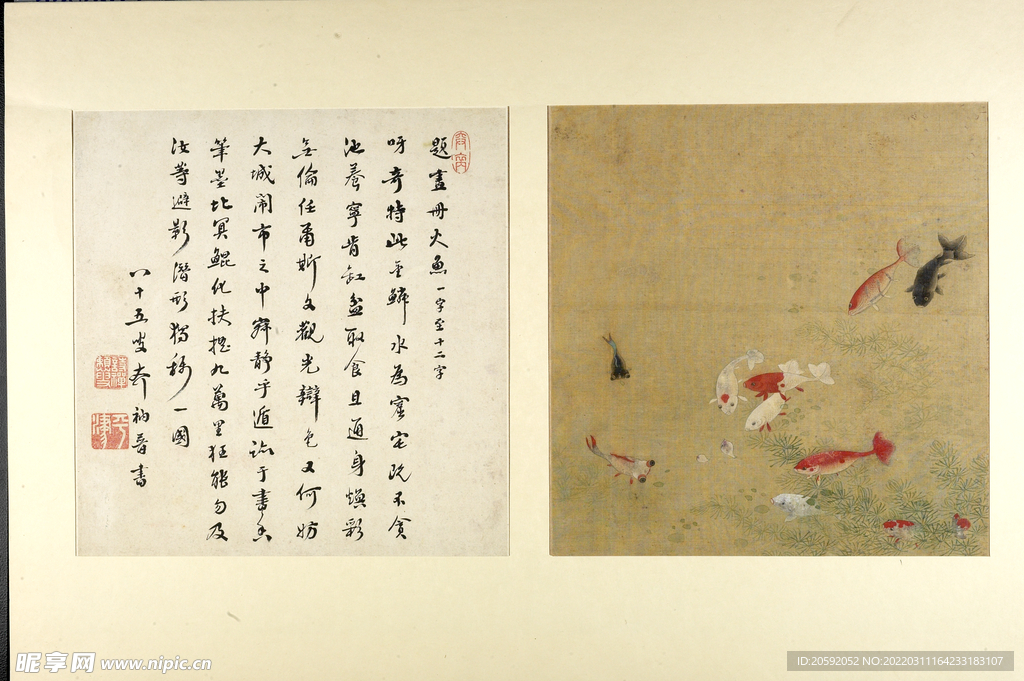 題畫冊火魚 一字至十二字
呀奇特此金鱗水為窟宅既不貪
池養寧肯缸盆取食且通身煥彩
無倫任爾斯文觀光辯色又何妨
大城閙市之中寂靜乎遁跡于書香
筆墨比冥鯤化扶搖九萬里狂能勿及
汝等避影潛形獨移一國
八十五叟卉衲普書
昵享网 www.nipic.cn
ID:20592052 NO:20220311164233183107